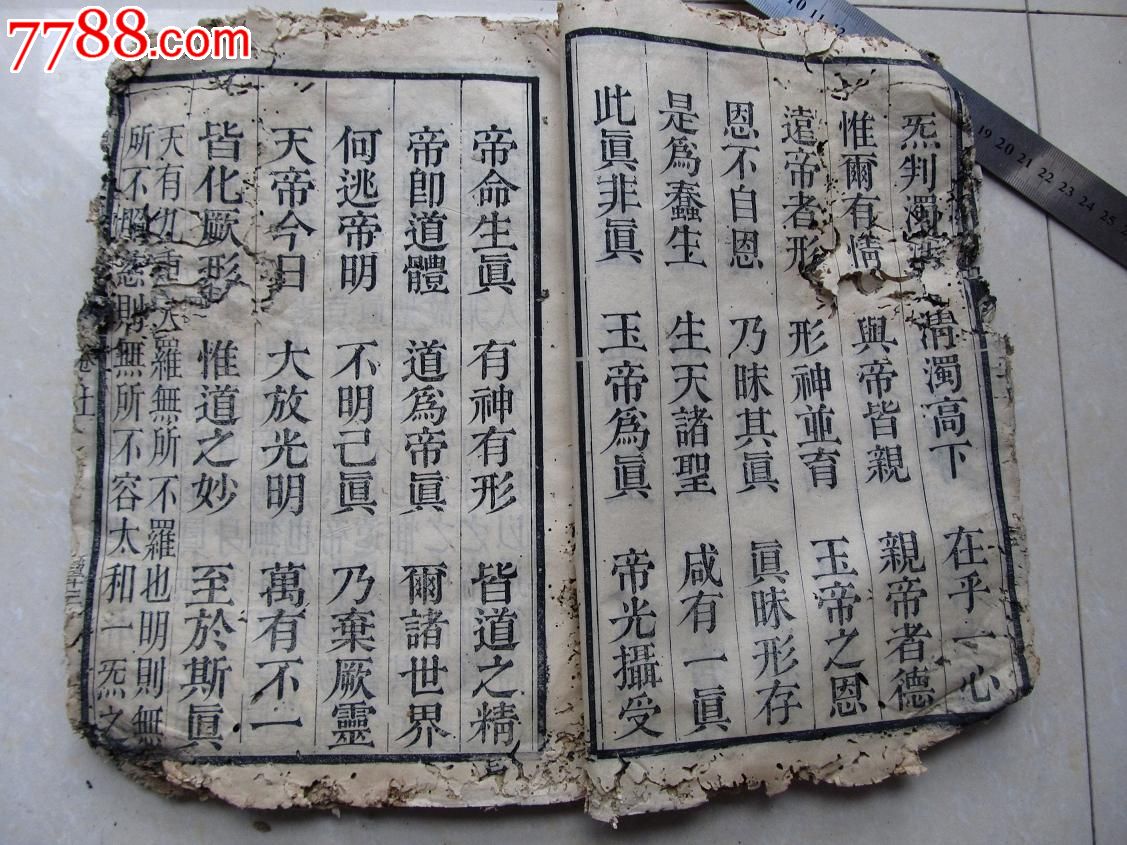 7788.com
炁判濁 清濁高下 在乎一心
惟爾有情 與帝皆親 親帝者德
遠帝者形 形神並育 玉帝之恩
恩不自恩 乃昧其眞 眞昧形存
是爲蠢生 生天諸聖 咸有一眞
此眞非眞 玉帝爲眞 帝光攝受
帝命生眞 有神有形 皆道之精
帝卽道體 道爲帝眞 爾諸世界
何逃帝明 不明己眞 乃棄厥靈
天帝今日 大放光明 萬有不一
皆化厥形 惟道之妙 至於斯眞
天有九重 羅無所不羅也明則無
所不 則無所不容太和一炁之
19 20 21 22 23 24 25